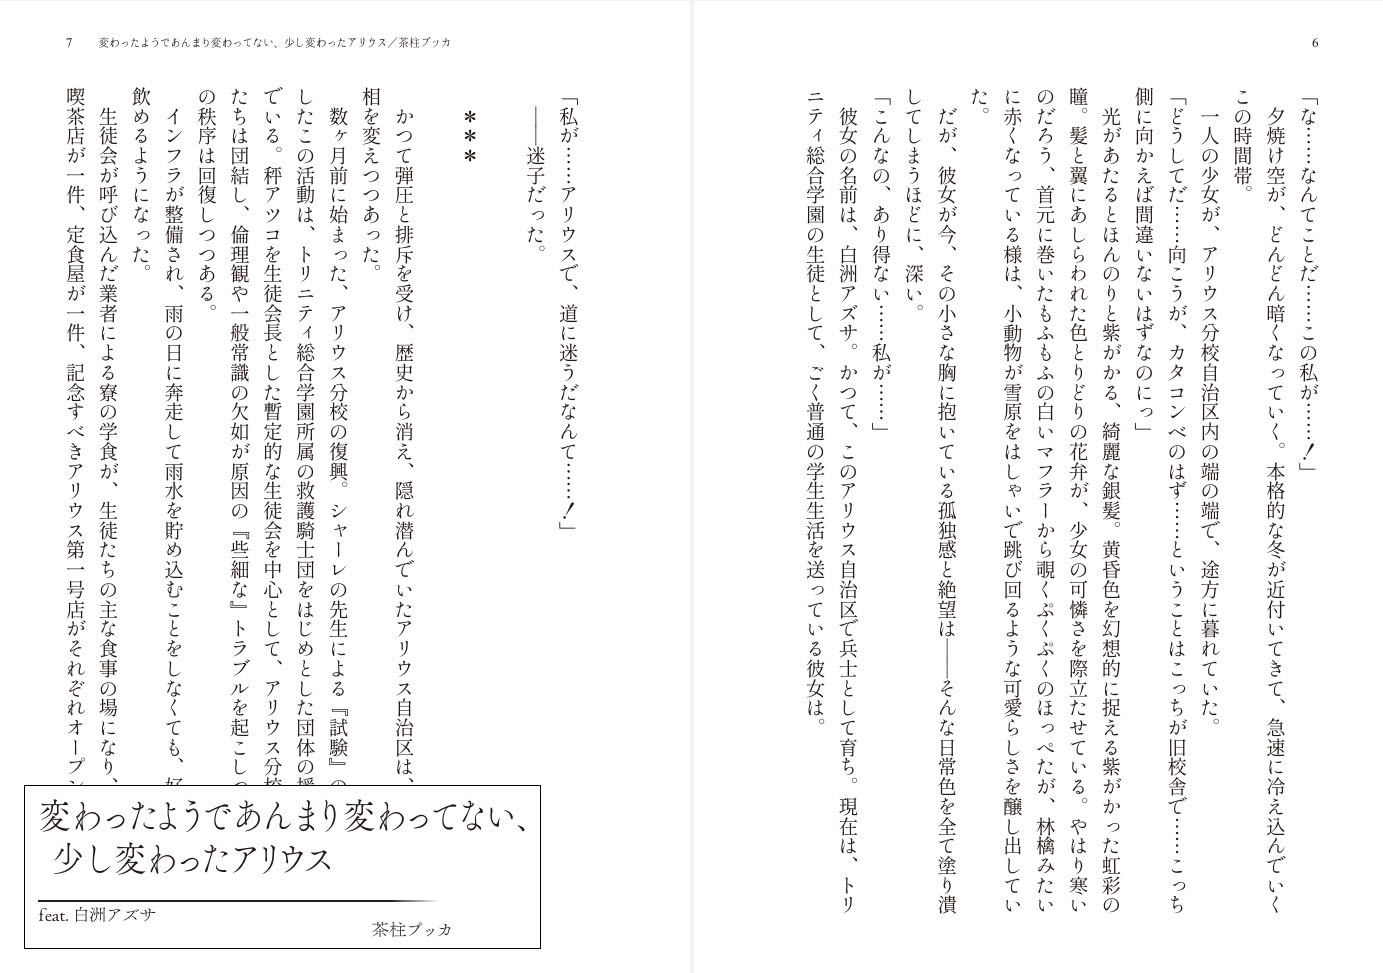 6
「な……なんてことだ……この私が……！」
　夕焼け空が、どんどん暗くなっていく。本格的な冬が近付いてきて、急速に冷え込んでいく
この時間帯。
　一人の少女が、アリウス分校自治区内の端の端で、途方に暮れていた。
「どうしてだ……向こうが、カタコンベのはず……ということはこっちが旧校舎で……こっち
側に向かえば間違いないはずなのにっ」
　光があたるとほんのりと紫がかる、綺麗な銀髪。黄昏色を幻想的に捉える紫がかった虹彩の
瞳。髪と翼にあしらわれた色とりどりの花弁が、少女の可憐さを際立たせている。やはり寒い
のだろう、首元に巻いたもふもふの白いマフラーから覗くぷくぷくのほっぺたが、林檎みたい
に赤くなっている様は、小動物が雪原をはしゃいで跳び回るような可愛らしさを醸し出してい
た。
　だが、彼女が今、その小さな胸に抱いている孤独感と絶望は――そんな日常色を全て塗り潰
してしまうほどに、深い。
「こんなの、あり得ない……私が……」
　彼女の名前は、白洲アズサ。かつて、このアリウス自治区で兵士として育ち。現在は、トリ
ニティ総合学園の生徒として、ごく普通の学生生活を送っている彼女は。
7　変わったようであんまり変わってない、少し変わったアリウス／茶柱ブッカ
「私が……アリウスで、道に迷うだなんて……！」
　――迷子だった。
＊＊＊
　かつて弾圧と排斥を受け、歴史から消え、隠れ潜んでいたアリウス自治区は、
相を変えつつあった。
　数ヶ月前に始まった、アリウス分校の復興。シャーレの先生による『試験』の
したこの活動は、トリニティ総合学園所属の救護騎士団をはじめとした団体の援
でいる。秤アツコを生徒会長とした暫定的な生徒会を中心として、アリウス分校
たちは団結し、倫理観や一般常識の欠如が原因の『些細な』トラブルを起こしつ
の秩序は回復しつつある。
　インフラが整備され、雨の日に奔走して雨水を貯め込むことをしなくても、好
飲めるようになった。
　生徒会が呼び込んだ業者による寮の学食が、生徒たちの主な食事の場になり、
喫茶店が一件、定食屋が一件、記念すべきアリウス第一号店がそれぞれオープン
変わったようであんまり変わってない、
少し変わったアリウス
feat. 白洲アズサ
茶柱ブッカ